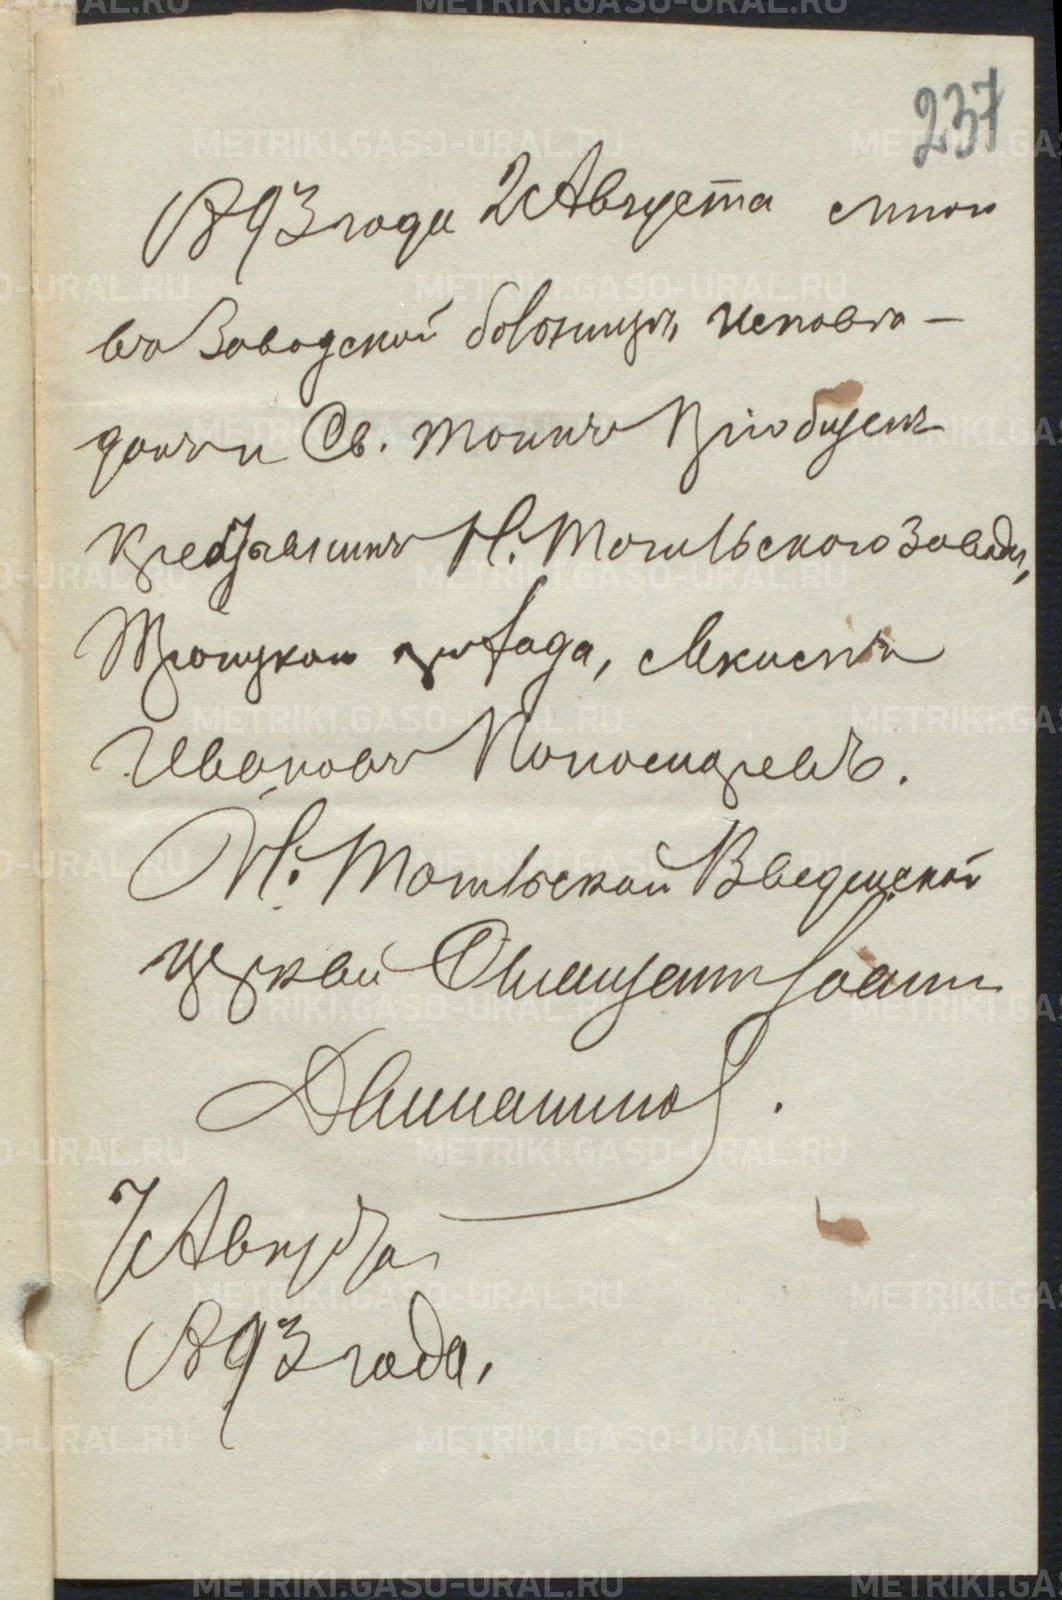 237
1893 года 2 Августа мною
въ Заводской больницѣ исповѣ-
данъ и Св. Тоинъ Пріобщенъ
крестьянинъ Н. Тагильскаго завода,
Троицкаго прихода, Алексѣй
Ивановъ Пономаревъ.
Н. Тагильской Введенской
церкви Священникъ Іоаннъ
7 Августа
1893 года.
METRIKI.GASO-URAL.RU